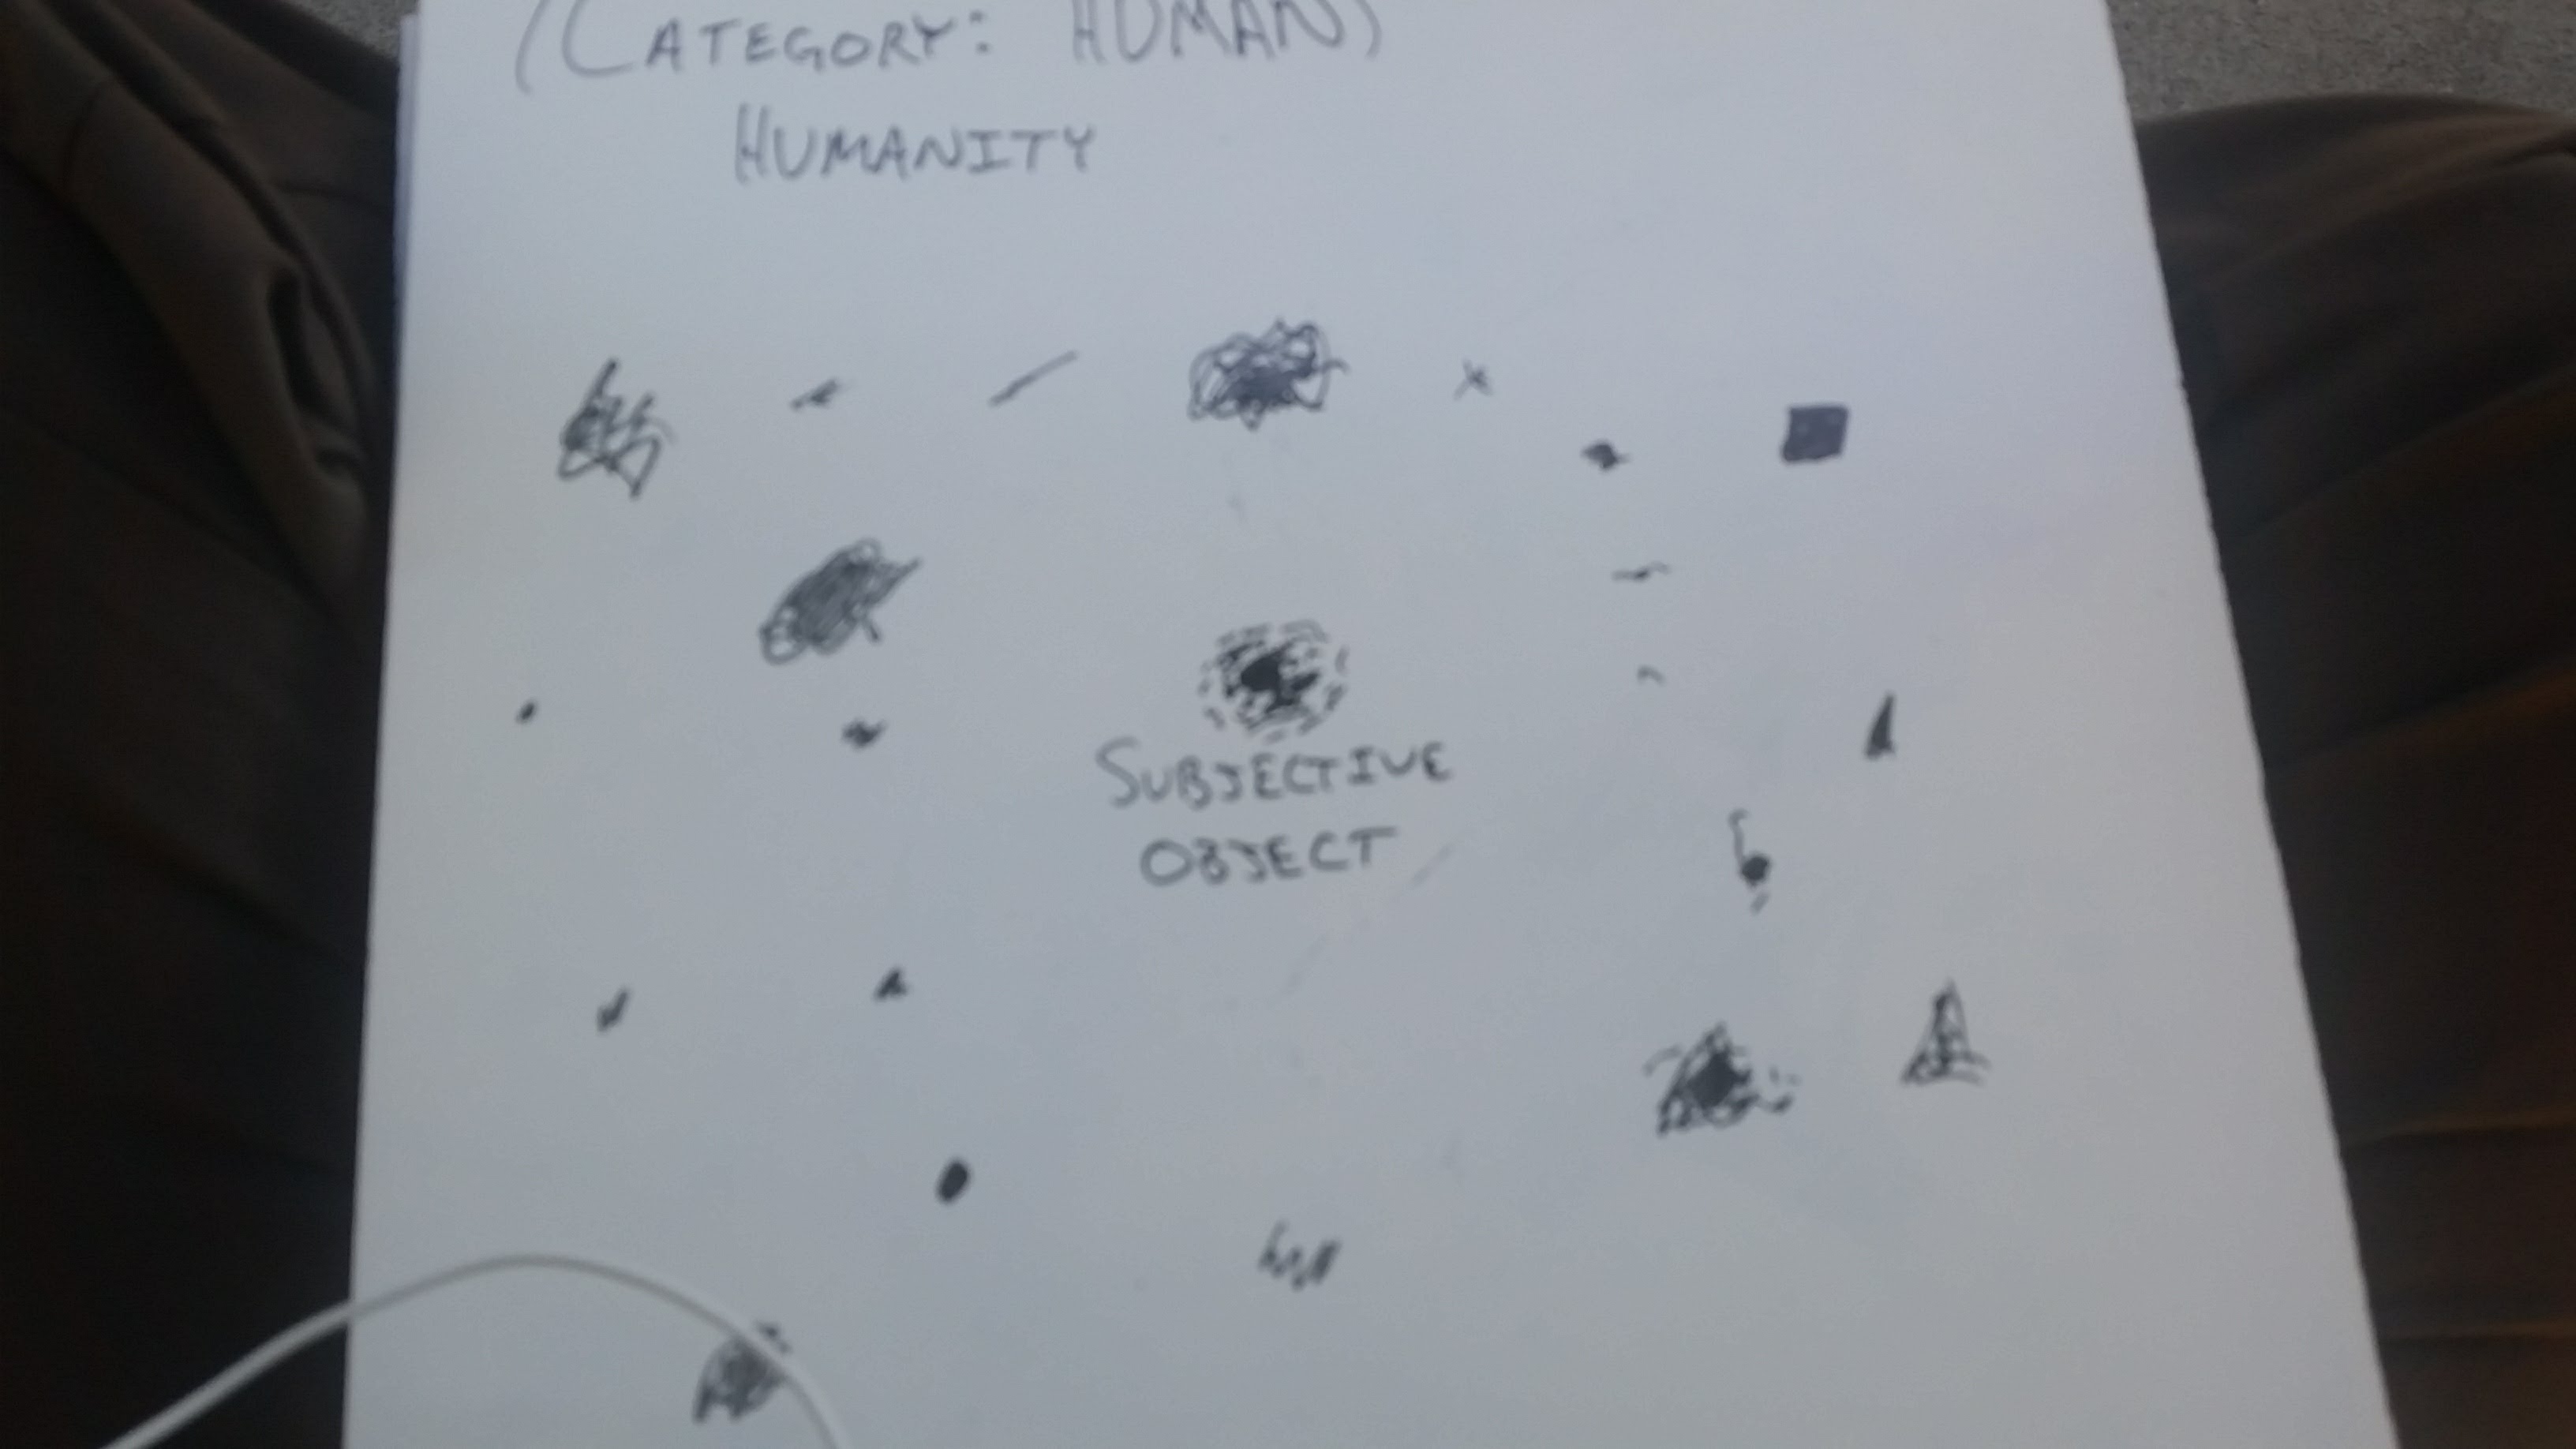 (CATEGORY: HUMAN)
HUMANITY
SUBJECTIVE
OBJECT